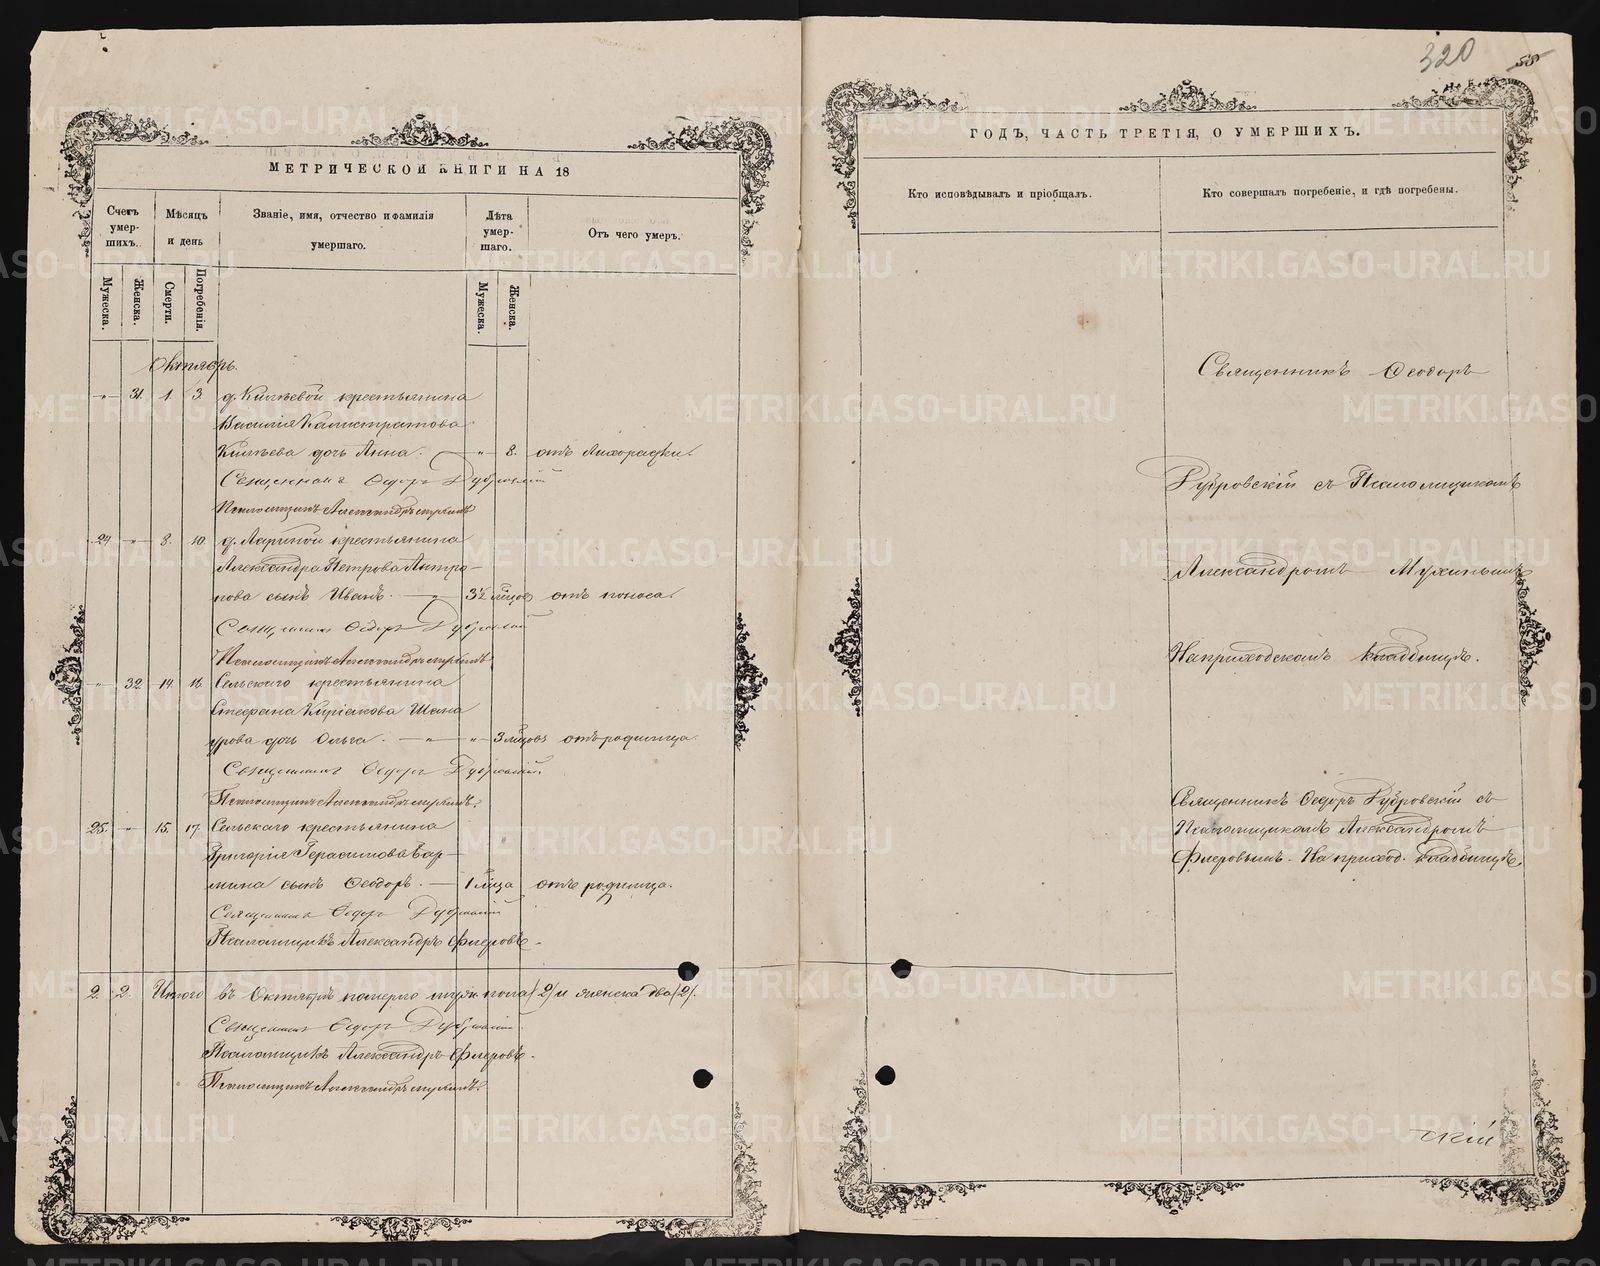 МЕТРИЧЕСКОЙ КНИГИ НА 18
Счетъ умершихъ.
Мѣсяцъ и день
Званіе, имя, отчество и фамилія умершаго.
Лѣта умершаго.
Отъ чего умеръ.
Мужеска.
Женска.
Смерти.
Погребенія.
Мужеска.
Женска.
Октябрь.
" 31. 1. 3. д. крестьянина
Василія Калистратова
дочь Анна. " 8. отъ лихорадки.
Священникъ Ѳедоръ Дубровскій
Псаломщикъ Александръ Мухинъ
24. " 8. 10. д. Лариной крестьянина
Александра Петрова Антро-
пова сынъ Иванъ. " 3½ мѣсяц. отъ поноса.
Священникъ Ѳедоръ Дубровскій
Псаломщикъ Александръ Мухинъ
" 32 14. 16. Сельскаго крестьянина
Стефана Киріакова
дочь Ольга. " " 3 мѣсяц. отъ родимца.
Священникъ Ѳедоръ Дубровскій.
Псаломщикъ Александръ Мухинъ.
25. " 15. 17. Сельскаго крестьянина
Григорія Герасимова
сынъ Ѳеодоръ. 1 мѣсяца отъ родимца.
Священникъ Ѳедоръ Дубровскій
Псаломщикъ Александръ Флеровъ.
2. 2. Итого въ Октябрѣ померло муж. пола (2) и женска два (2).
Священникъ Ѳедоръ Дубровскій
Псаломщикъ Александръ Флеровъ.
Псаломщикъ Александръ Мухинъ.
320 58
ГОДЪ, ЧАСТЬ ТРЕТІЯ, О УМЕРШИХЪ.
Кто исповѣдывалъ и пріобщалъ.
Кто совершалъ погребеніе, и гдѣ погребены.
Священникъ Ѳеодоръ
Дубровскій съ Псаломщикомъ
Александромъ Мухинымъ
На приходскомъ кладбищѣ.
Священникъ Ѳеодоръ Дубровскій съ
Псаломщикомъ Александромъ
Флеровымъ. На приход. кладбищѣ.
скій
METRIKI.GASO-URAL.RU